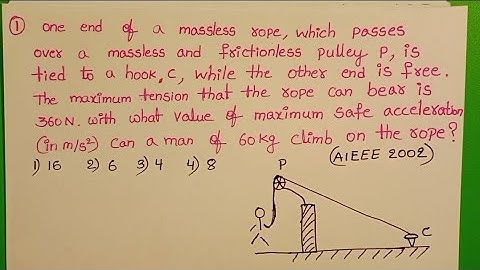 ① one end of a massless rope, which passes
over a massless and frictionless pulley P, is
tied to a hook, C, while the other end is free.
The maximum tension that the rope can bear is
360N. with what value of maximum safe acceleration
(in m/s²) can a man of 60kg climb on the rope?
1) 16 2) 6 3) 4 4) 8 (AIEEE 2002)
P
C